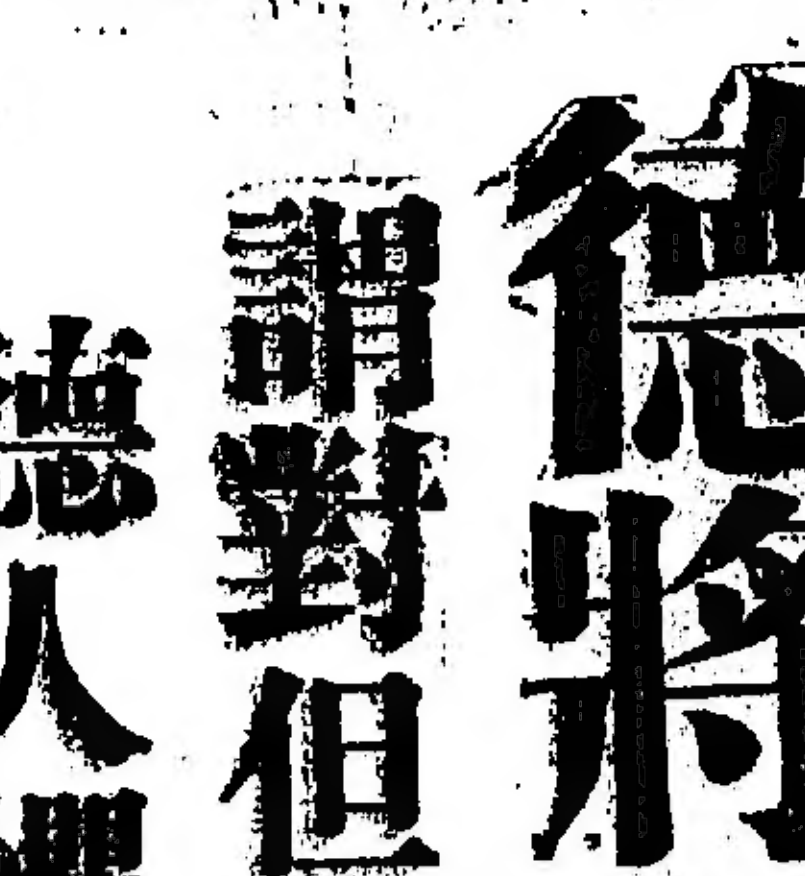 德將
謂對但
人